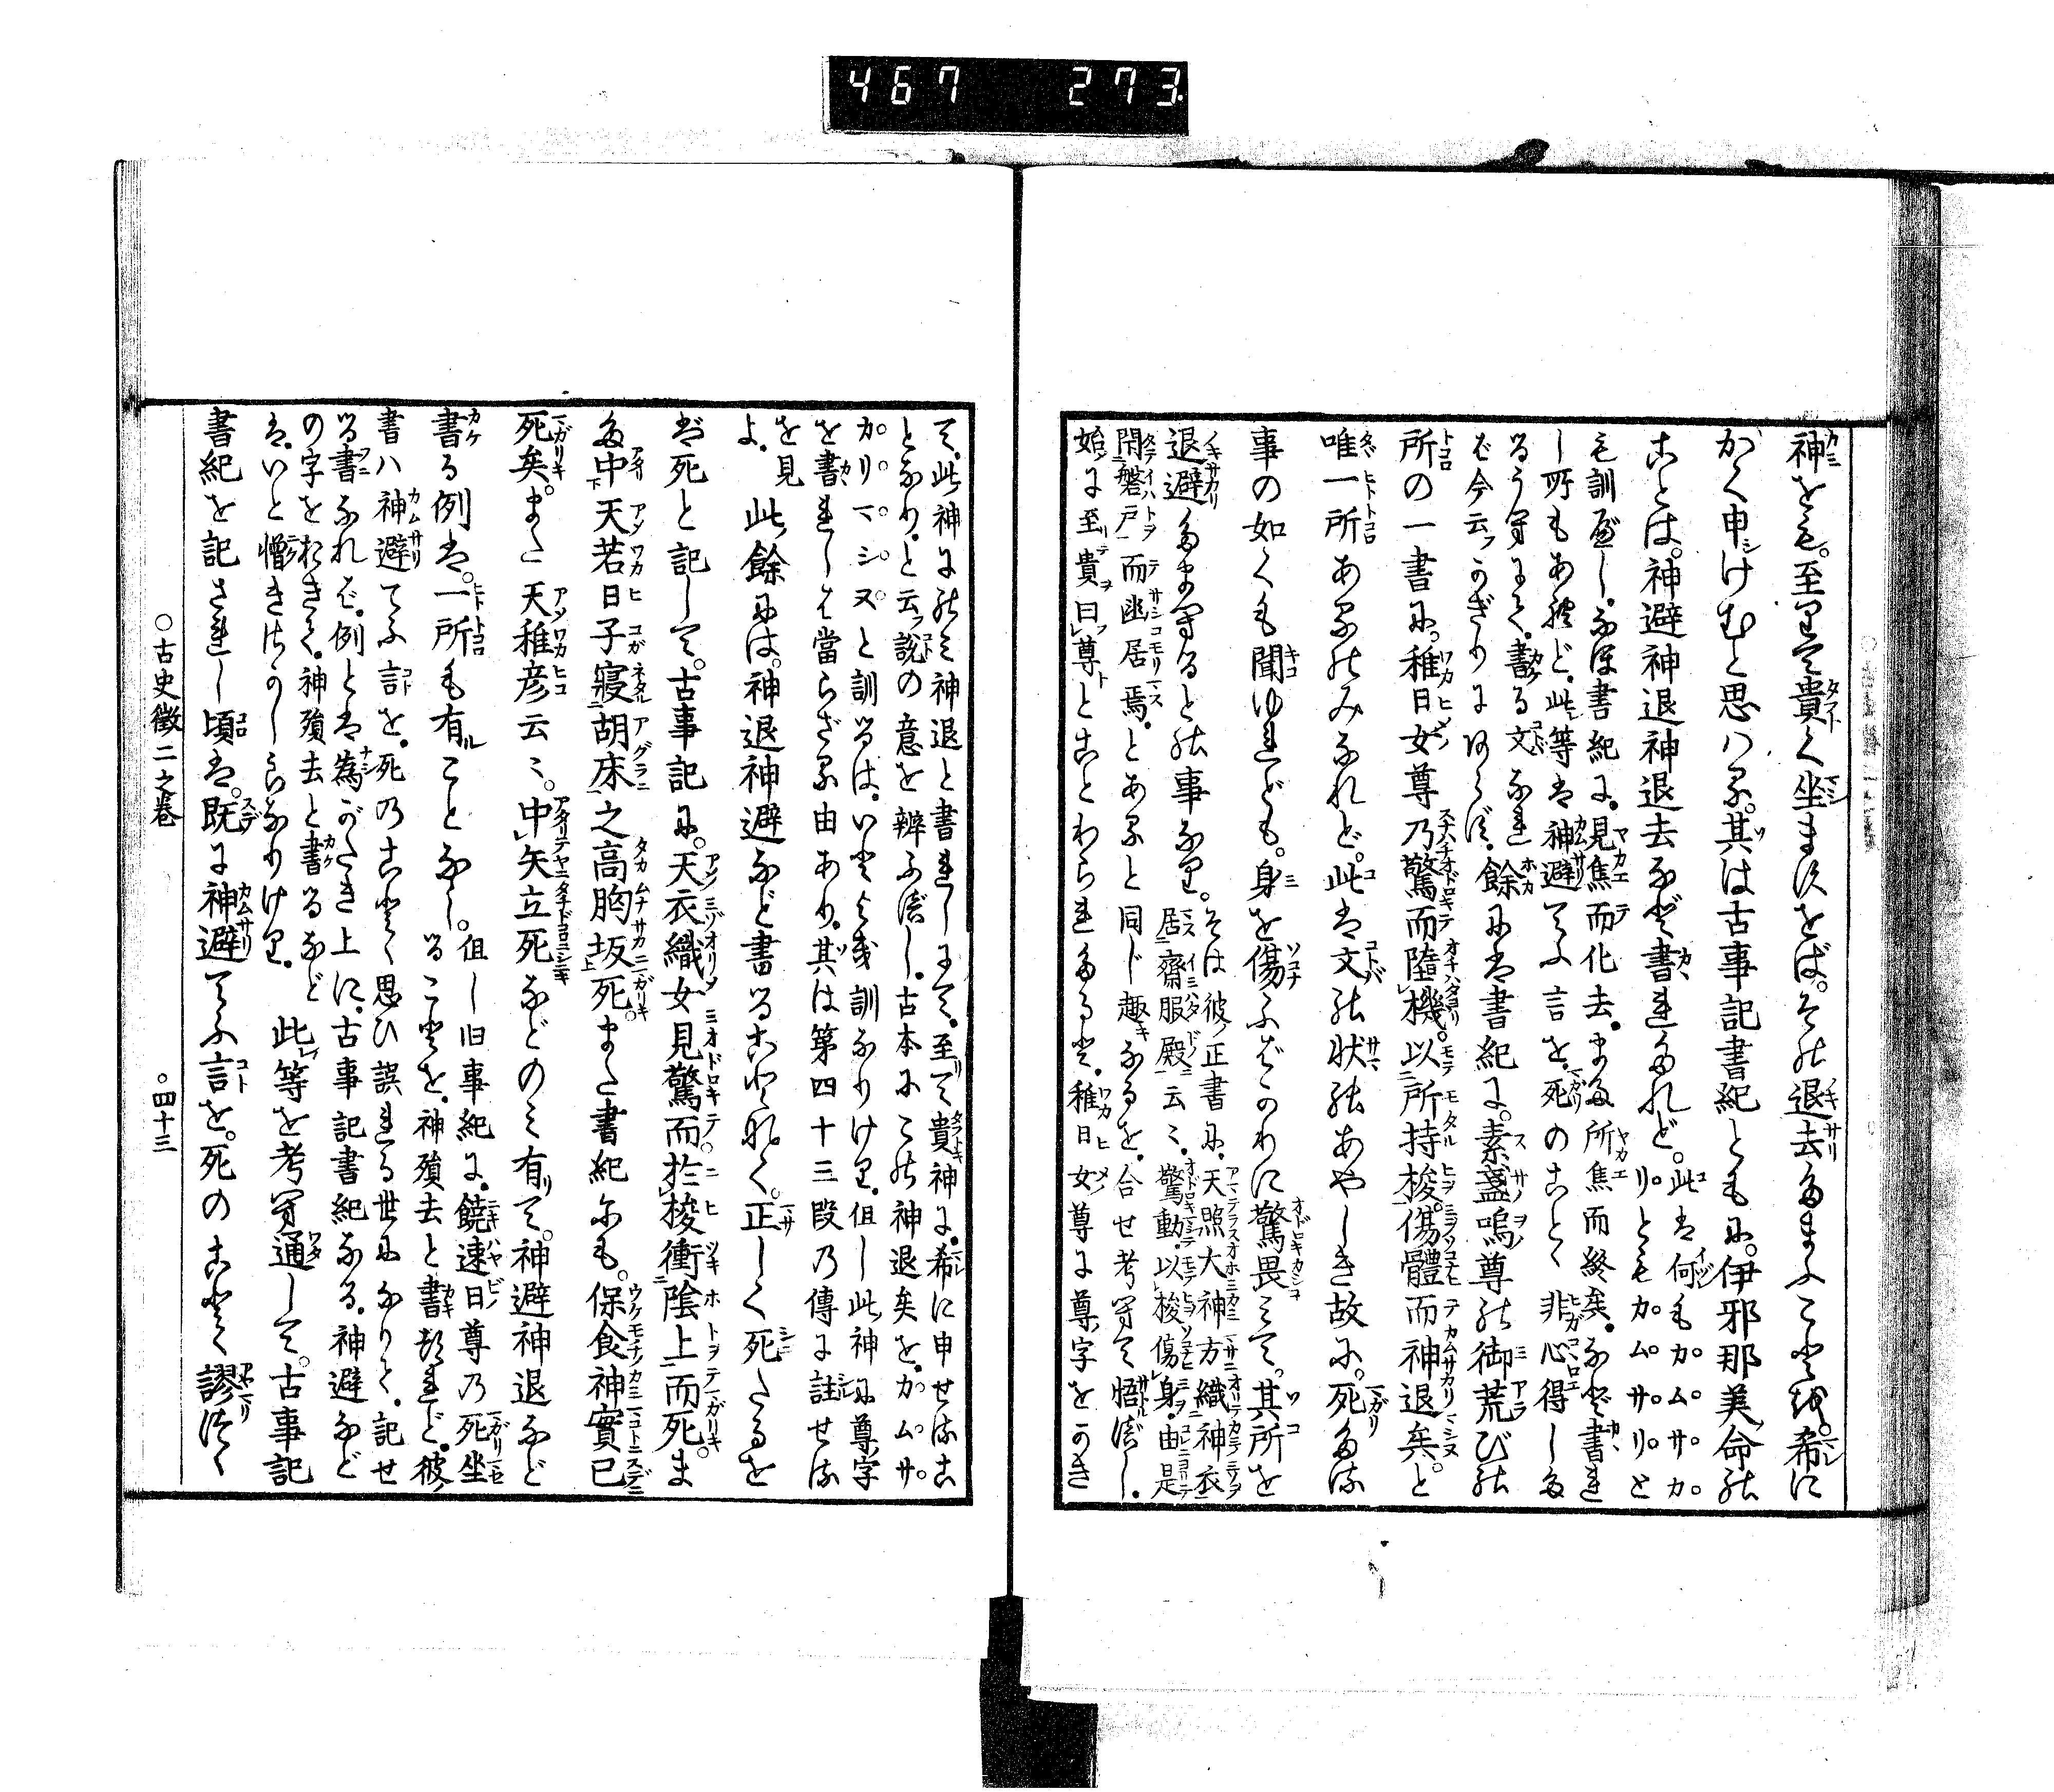 467 273
神をも。至りて貴く坐ま須をば。その退去たまふことを。希に
かく申けむと思ハる。其は古事記書紀ともに。伊邪那美命の
ことは。神避神退神退去など書れたれど。此は何もカムサカ
リともカムサリと
も訓べし。なほ書紀に。見焦而化去。また所焦而終矣。など書れ
し所もあれど。此等は神避てふ言を。死のことゝ非心得した
るうへにて。書る文なれ
ば今云フかぎりにあらず。餘には書紀に。素盞嗚尊の御荒びの
所の一書に。稚日女尊乃驚而墮機。以所持梭傷體而神退矣。と
唯一所あるのみなれど。此は文の状のあやしき故に。死たる
事の如くも聞ゆれども。身を傷ふばかりに驚畏みて。其所を
退避たまへると の事なり。そは彼ノ正書に。天照大神方織神衣
居齋服殿云々。驚動。以梭傷身。由是
閇磐戸而幽居焉。とあると同じ趣なるを。合せ考へて悟べし。
始に至貴曰尊とことわられたるを。稚日女尊に尊ノ字をかき
て。此神にのみ神退と書れしにて。至りて貴神に。希に申せるこ
となり。と云フ説の意を辨ふべし。古本にこの神退矣を。カムサ
カリマシヌと訓るは。いとよき訓なりけり。但し此神に尊字
を書れしハ當らざる由あり。其は第四十三段の傳に註せる
を見
よ。此餘には。神退神避など書ることなく。正しく死たるを
ば死と記して。古事記に。天衣織女見驚而於梭衝陰上而死。ま
た中天若日子寢胡床之高胸坂死。また書紀にも。保食神實已
死矣。また天稚彦云々。中矢立死などのミ有て。神避神退など
書る例は。一所も有ことなし。但し旧事紀に。饒速日尊乃死坐
ることを。神殞去と書れど。彼
書ハ神避てふ言を。死のことゝ思ひ誤れる世になりて。記せ
る書なれば。例とは為がたき上に。古事記書紀なる。神避など
の字をおきて。神殞去と書るなど
は。いと憎きさかしらなりけり。此等を考へ通して。古事記
書紀を記されし頃は。既に神避てふ言を。死のことゝ謬つく
○古史徴二之巻 ○四十三